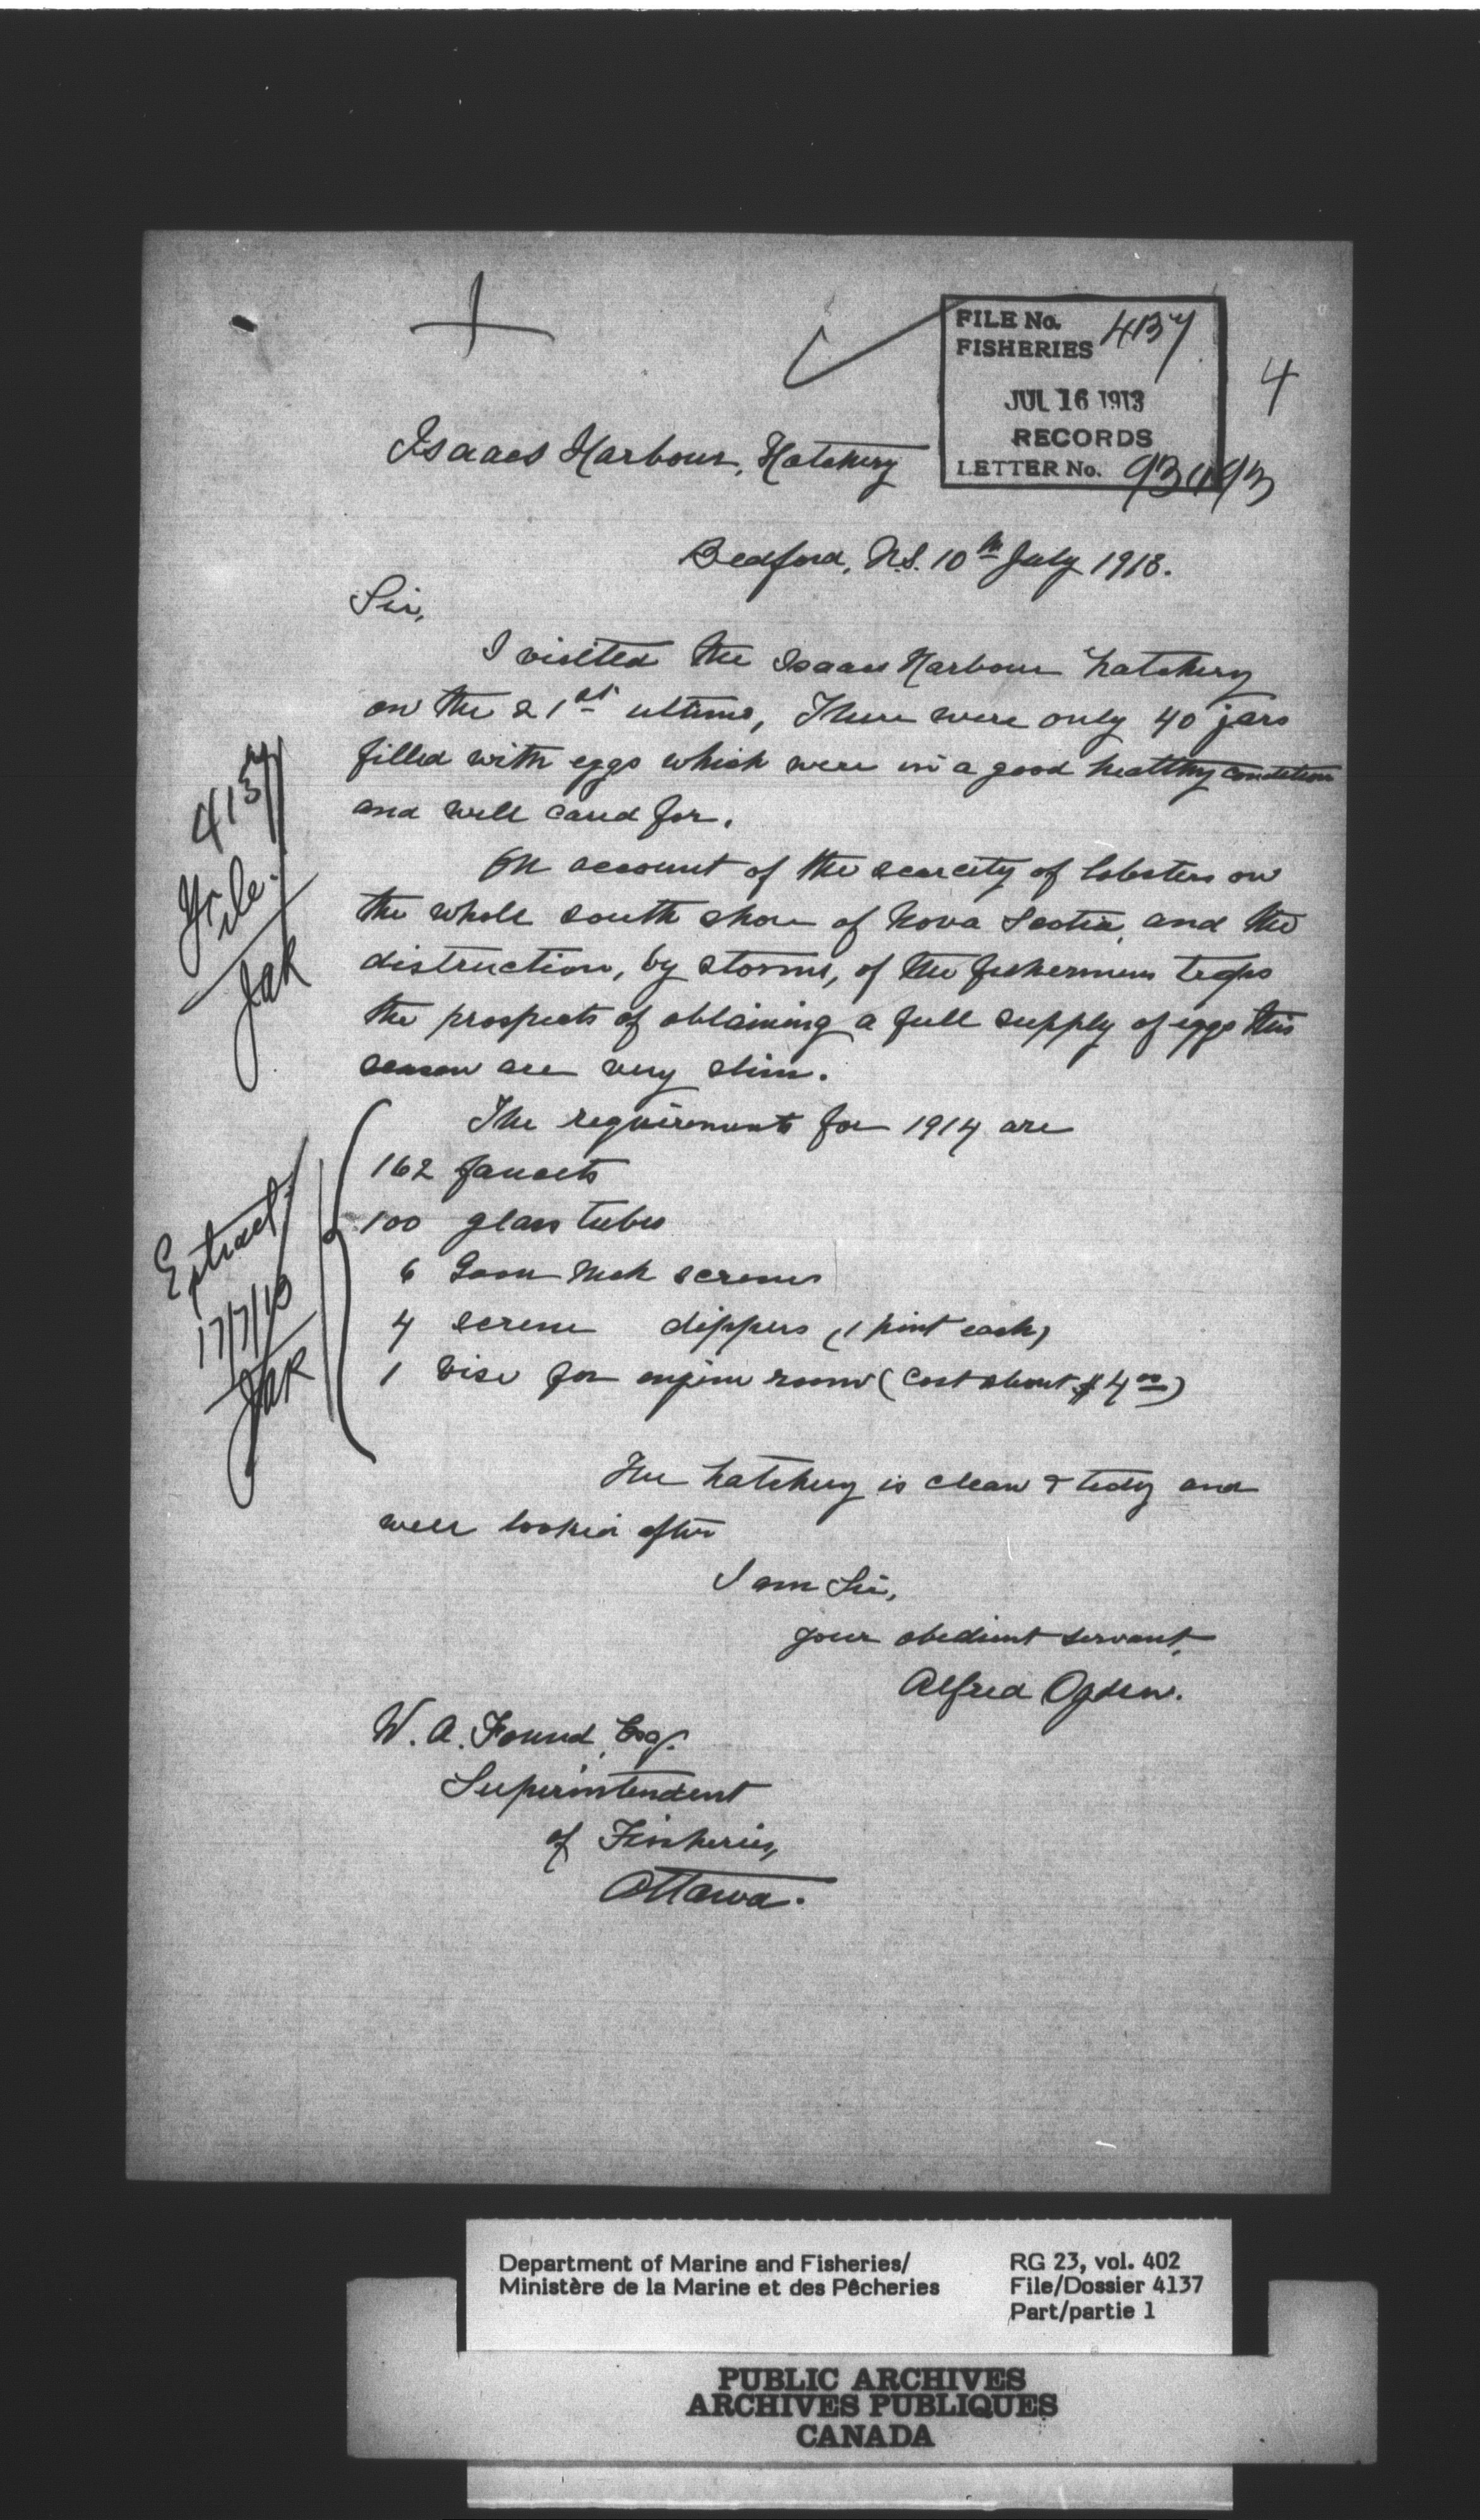 FILE No. 4137
FISHERIES
JUL 16 1913
RECORDS
LETTER No.
4
Isaacs Harbour, Hatchery
Bedford, N.S. 10th July 1913.
Sir,
I visited the Isaacs Harbour hatchery
on the 21st ultimo, There were only 40 jars
filled with eggs which were in a good healthy condition
and well cared for.
On account of the scarcity of lobsters on
the whole south shore of Nova Scotia, and the
distruction, by storms, of the fishermens traps
the prospects of obtaining a full supply of eggs this
season are very slim.
The requirements for 1914 are
162 faucets
100 glass tubes
6 Goose Neck screens
4 screen dippers (1 pint each)
1 Vise for engine room (Cost about $4 00)
The hatchery is clean & tidy and
well looked after
I am Sir,
your obedient servant,
Alfred Ogden.
W. A. Found, Esq.
Superintendent
of Fisheries,
Ottawa.
4137
File
JAR
Extract
JAR
Department of Marine and Fisheries/
Ministère de la Marine et des Pêcheries
RG 23, vol. 402
File/Dossier 4137
Part/partie 1
PUBLIC ARCHIVES
ARCHIVES PUBLIQUES
CANADA